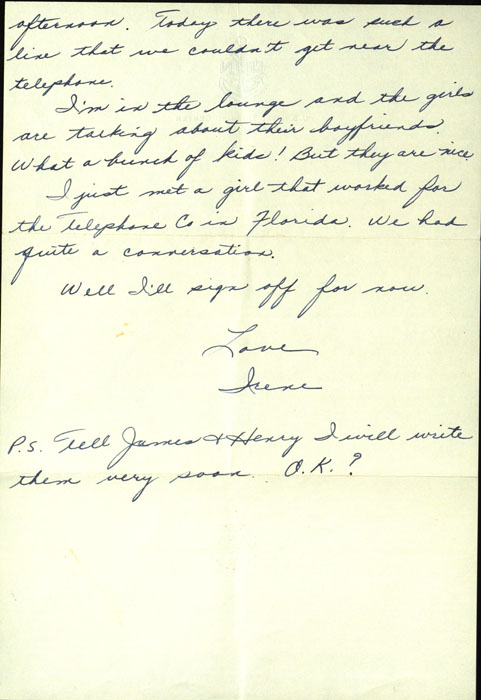 afternoon. Today there was such a
line that we couldn't get near the
telephone.
I'm in the lounge and the girls
are talking about their boyfriends.
What a bunch of kids! But they are nice
I just met a girl that worked for
the Telephone Co in Florida. We had
quite a conversation.
Well I'll sign off for now.
Love
Irene
P.S. Tell James & Henry I will write
them very soon. O.K.?